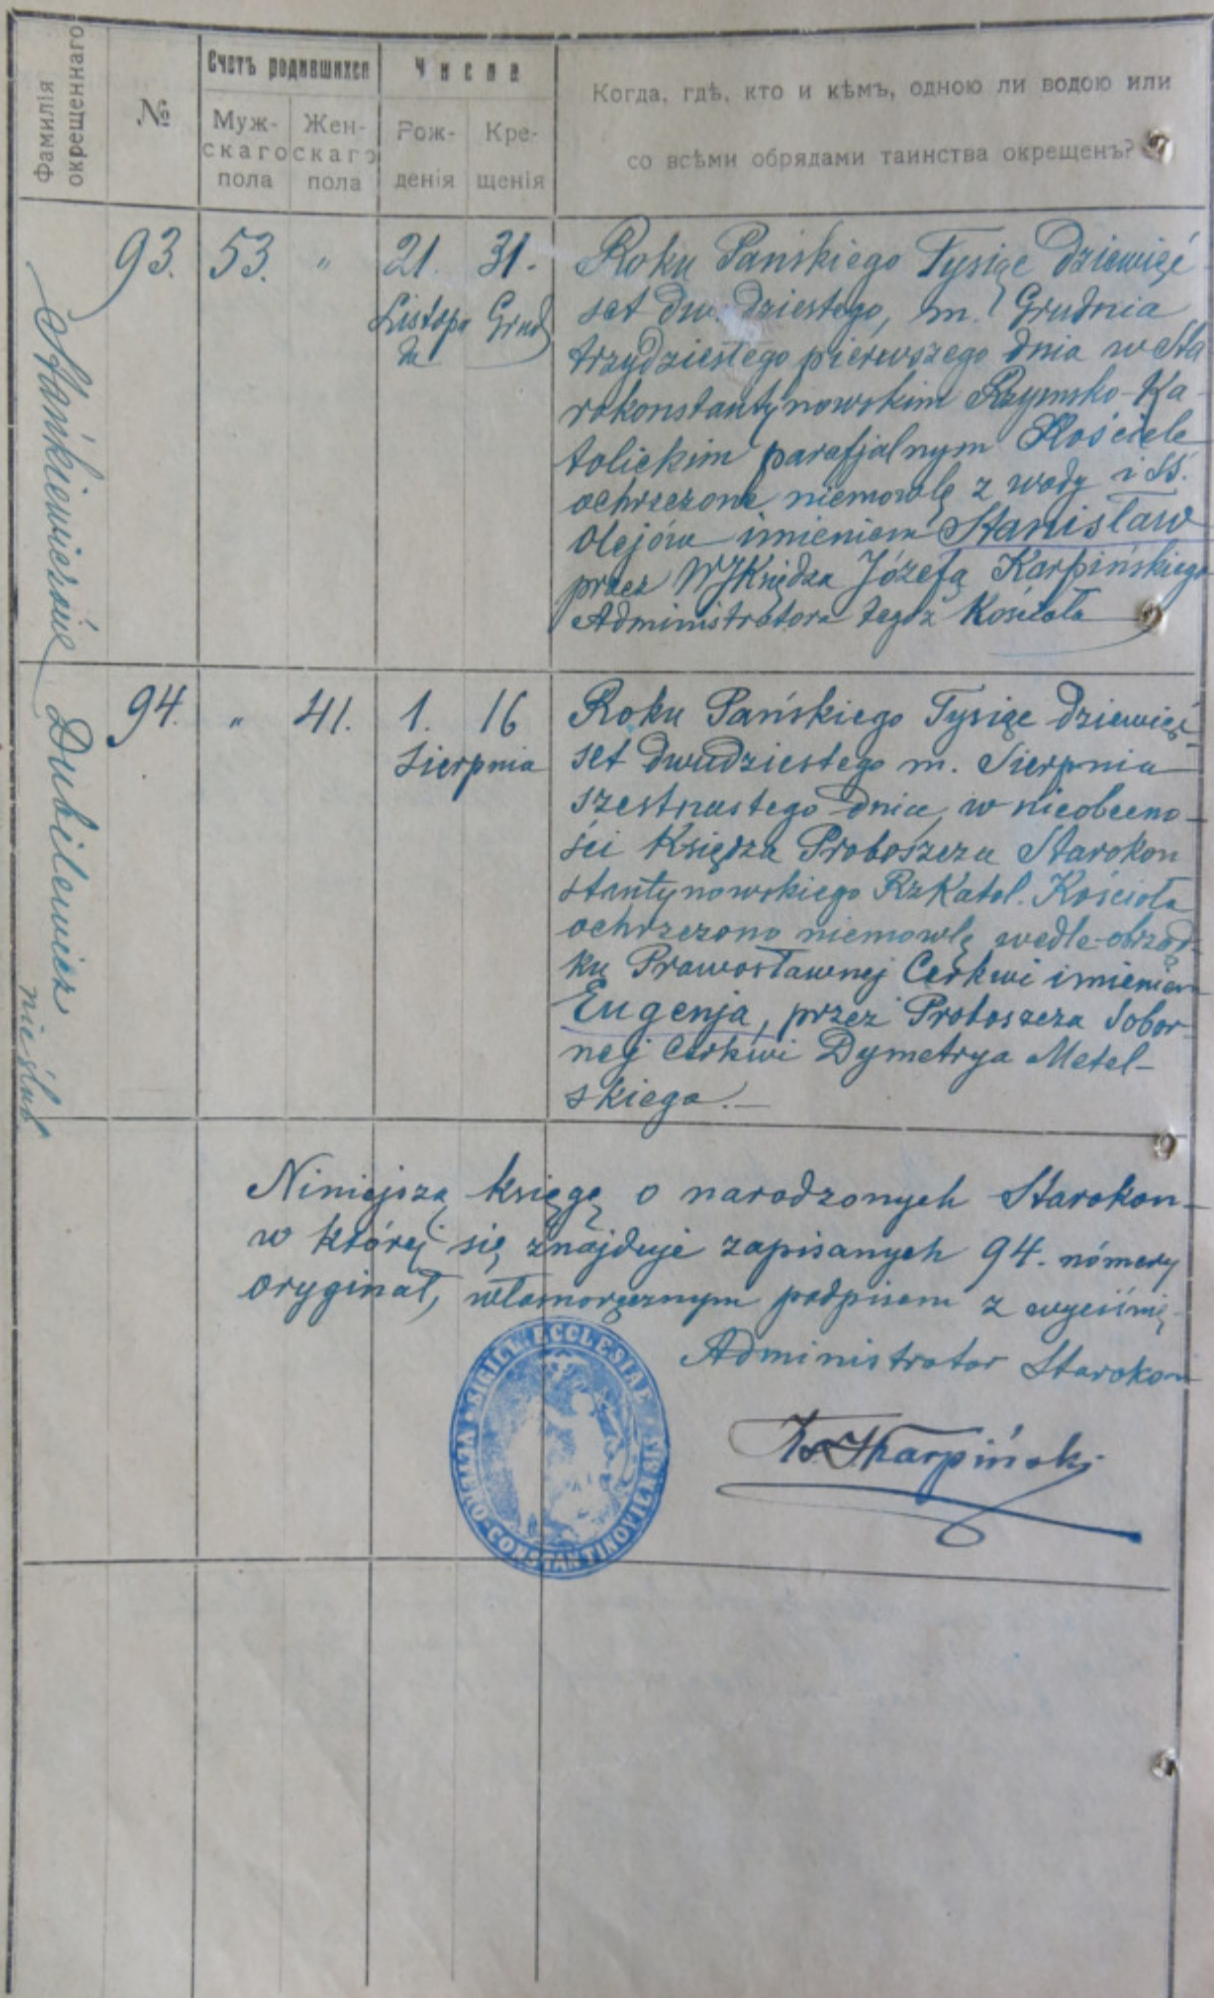 Фамилія
окрещеннаго
№
Счетъ родившихся
Муж-
скаго
пола
Жен-
скаго
пола
Числа
Рож-
денія
Кре-
щенія
Когда, гдѣ, кто и кѣмъ, одною ли водою или
со всѣми обрядами таинства окрещенъ?
93.
53.
"
21.
Listopa
da
31.
Grud
Roku Pańskiego Tysiąc Dziewięć
set dw. dziestego, m. Grudnia
trzydziestego pierwszego dnia w Sta
rokonstantynowskim Rzymsko-Ka
tolickim parafjalnym Kościele
ochrzczono niemowlę z wody i SS.
Olejów imieniem Stanisław
przez WJKsiędza Józefa Karpińskiego
Administratora tegoż Kościoła
94.
"
41.
1.
16
Sierpnia
Dubilewicz
nieślub
Roku Pańskiego Tysiąc dziewięć
set dwudziestego m. Sierpnia
szestnastego dnia, w nieobecno-
ści Księdza Proboszcza Starokon
stantynowskiego RzKatol. Kościoła
ochrzczono niemowlę wedle obrząd-
ku Prawosławnej Cerkwi imieniem
Eugenja, przez Proboszcza Sobor
nej Cerkwi Dymetrya Metel-
skiego.-
Niniejszą księgę o narodzonych Starokon-
w której się znajduje zapisanych 94. nómery
oryginał, własnoręcznym podpisem z wyciśnię-
Administrator Starokon
SIGILL. ECCLESIAE
CONSTANTINOVIENSIS
Karpiński